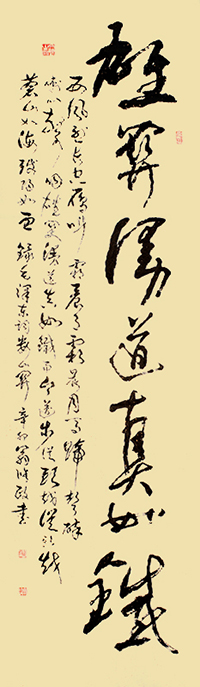 雄關漫道真如鐵
西風烈長空雁叫霜晨月霜晨月馬蹄聲碎
喇叭聲咽雄關漫道真如鐵而今邁步從頭越從頭越
蒼山如海殘陽如血錄毛澤東詞婁山關辛卯翁政書